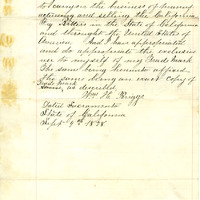 to carry on the business of
and selling the California
in the State of California
and through the United States of
America. And I have appropriated
and do appropriate the exclusive
use to myself of my Trade Mark
The same being hereunto affixed
the same being an exact Copy of
Trade Mark
as described
Wm H.
Dated Sacramento
State of California
Sept 9th 1878